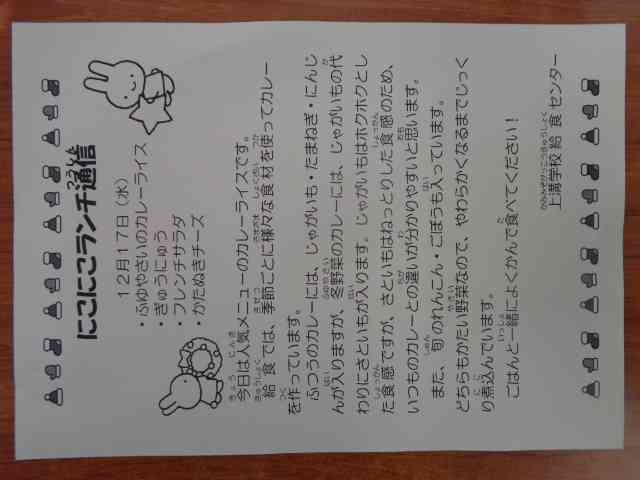 にこにこランチ通信
12月17日（水）
・ふゆやさいのカレーライス
・ぎゅうにゅう
・フレンチサラダ
・かたぬきチーズ
今日は人気メニューのカレーライスです。
給食では、季節ごとに様々な食材を使ってカレー
を作っています。
ふつうのカレーには、じゃがいも・たまねぎ・にんじ
んが入りますが、冬野菜のカレーには、じゃがいもの代
わりにさといもが入ります。じゃがいもはホクホクとし
た食感ですが、さといもはねっとりした食感のため、
いつものカレーとの違いが分かりやすいと思います。
また、旬のれんこん・ごぼうも入っています。
どちらもかたい野菜なので、やわらかくなるまでじっく
り煮込んでいます。
ごはんと一緒によくかんで食べてください！
上溝学校給食センター